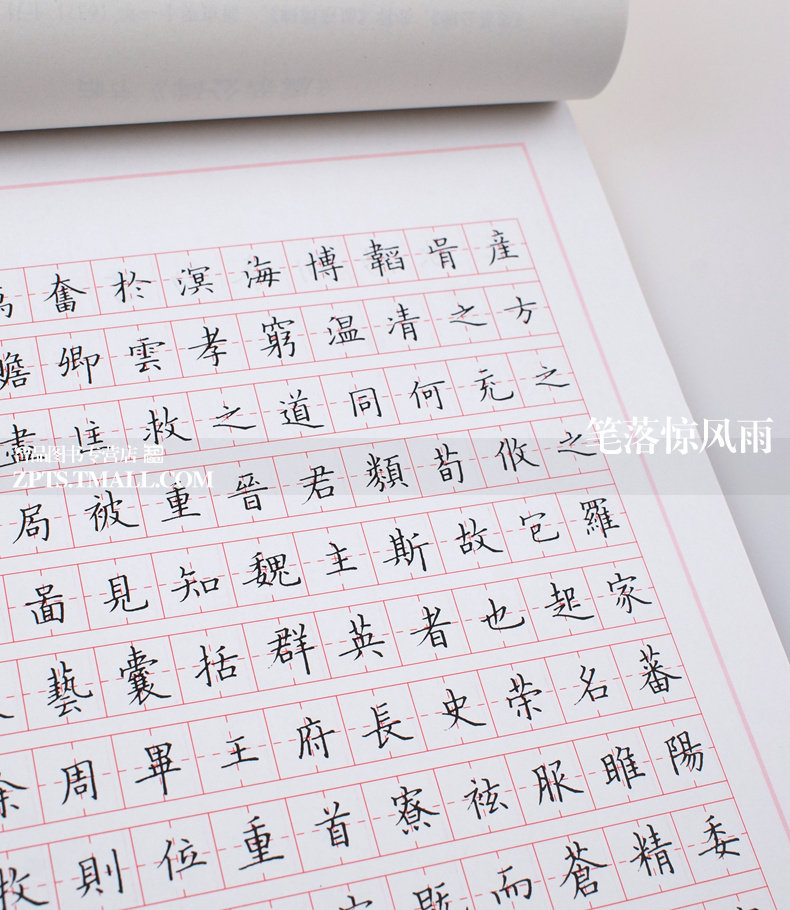 奮於溟海博韜産
瞻卿雲孝窮温凊之方
匡救之道同何充之
局被重晉君類荀攸之
啚見知魏主斯故包羅
藝囊括群英者也起家
周畢王府長史荣名蕃
牧則位重首寮袨服睢陽
既而蒼精委
笔落惊风雨
品图书专营店
ZPTS.TMALL.COM